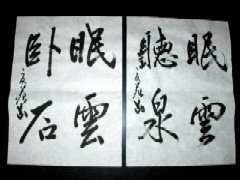 眠雲
聽泉
眠雲
卧石